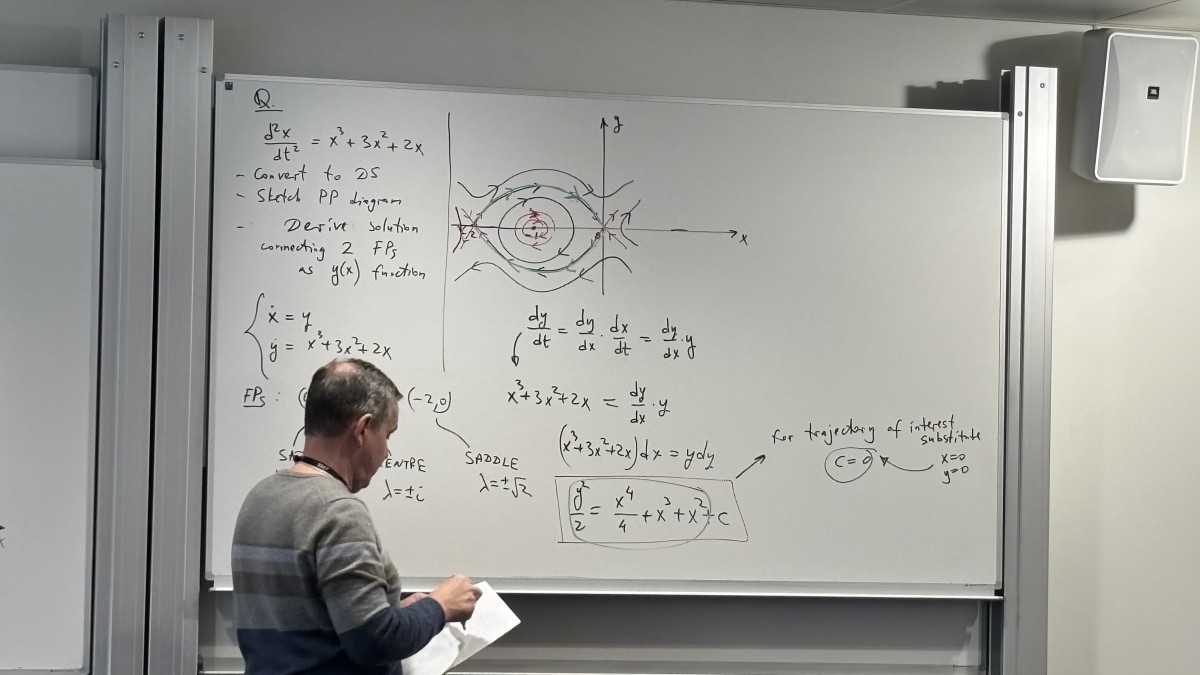 Q.
d²x/dt² = x³ + 3x² + 2x
- Convert to DS
- Sketch PP diagram
- Derive solution
connecting 2 FPs
as y(x) function
ẋ = y
ẏ = x³ + 3x² + 2x
FPs : (-2,0)
ENTRE
λ = ±i
SADDLE
λ = ±√2
y
x
-2
-1
dy/dt = dy/dx · dx/dt = dy/dx · y
x³ + 3x² + 2x = dy/dx · y
(x³ + 3x² + 2x) dx = y dy
y²/2 = x⁴/4 + x³ + x² + C
for trajectory of interest
substitute
x=0
y=0
C = 0